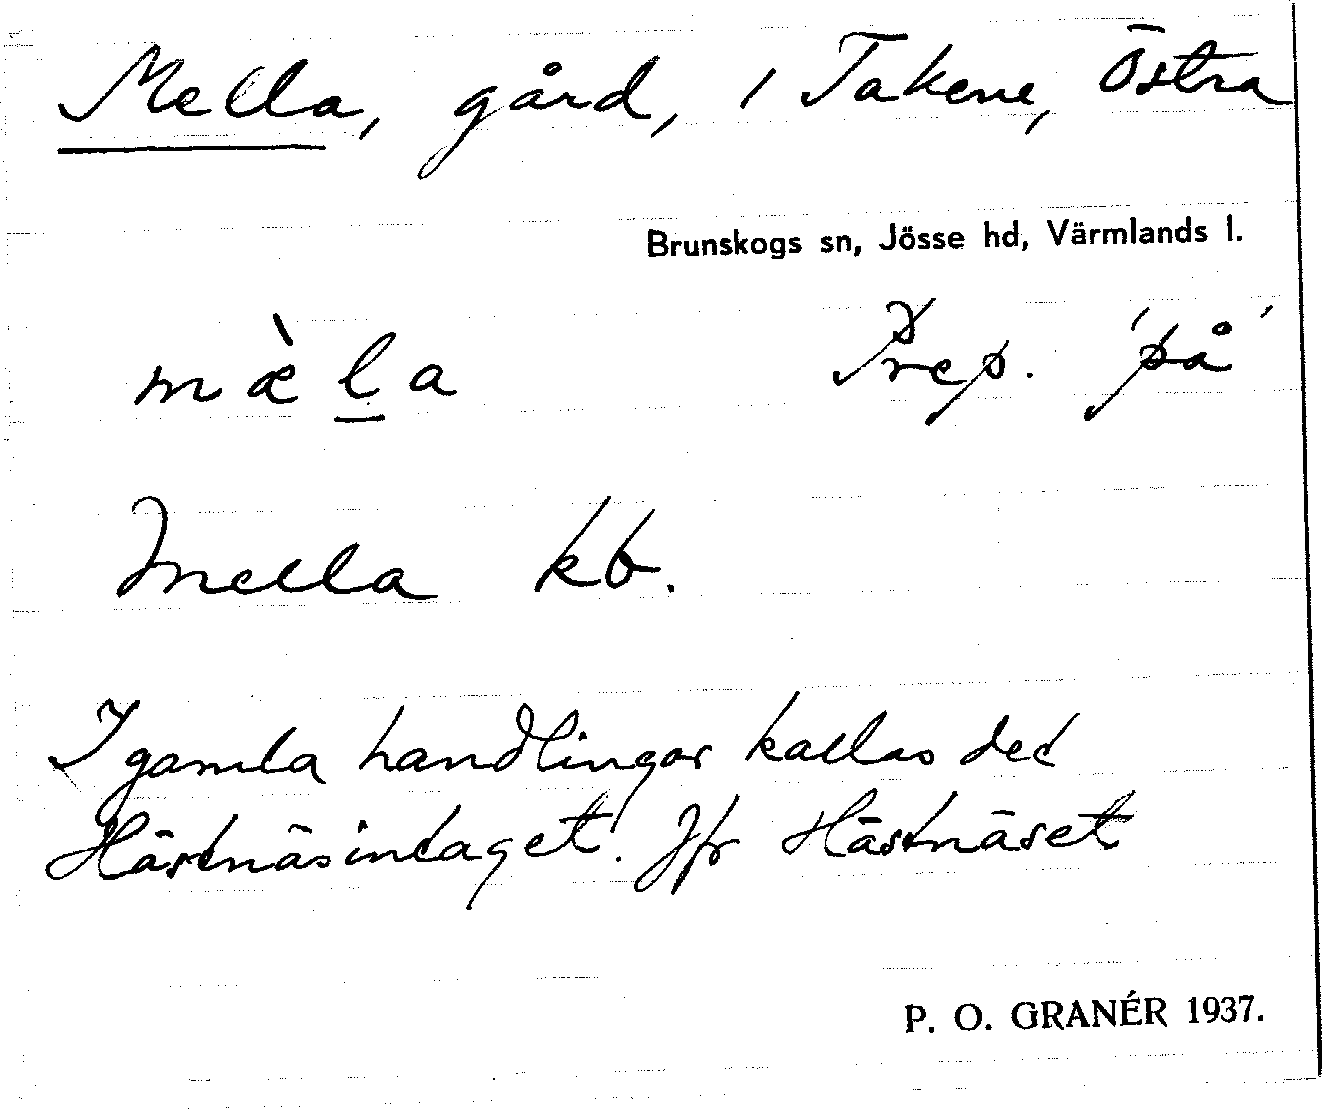 Mella, gård, i Takene, Östra
Brunskogs sn, Jösse hd, Värmlands l.
mæ̀l̲a Prep. 'på'
Mella kb.
I gamla handlingar kallas det
Hästnäsintaget. Jfr Hästnäset
P. O. GRANÉR 1937.